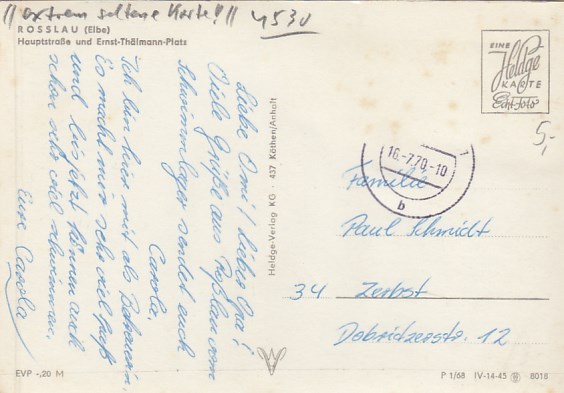 !! extrem seltene Karte!! 4530
ROSSLAU (Elbe)
Hauptstraße und Ernst-Thälmann-Platz
Liebe Omi! Lieber Opa!
Viele Grüße aus Roßlau vom
Schwimmlager sendet euch
Carola.
Ich bin hier mit als Betreuerin.
Es macht mir sehr viel Spaß
und bis jetzt können auch
schon sehr viel schwimmen.
Eure Carola
Heldge-Verlag KG · 437 Köthen/Anhalt
EINE
Heldge
KARTE
Echt-Foto
5,-
16.-7.70.-10
b
Familie
Paul Schmidt
34 Zerbst
Dobritzerstr. 12
EVP -,20 M
P 1/68 IV-14-45 8018